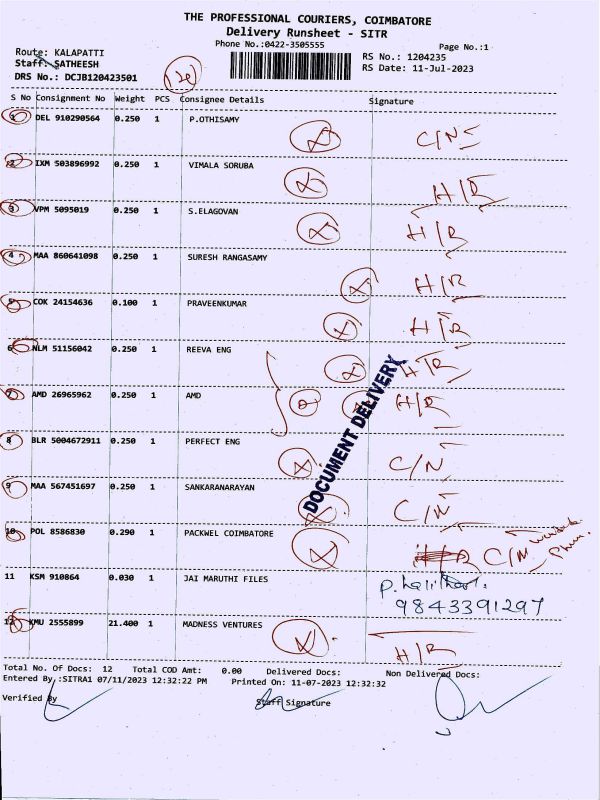 THE PROFESSIONAL COURIERS, COIMBATORE
Delivery Runsheet - SITR
Phone No.:0422-3505555
Page No.:1
Route: KALAPATTI
Staff: SATHEESH
DRS No.: DCJB120423501
RS No.: 1204235
RS Date: 11-Jul-2023
S No Consignment No Weight PCS Consignee Details Signature
1 DEL 910290564 0.250 1 P.OTHISAMY C/N
2 IXM 503896992 0.250 1 VIMALA SORUBA H/R
3 VPM 5095019 0.250 1 S.ELAGOVAN H/R
4 MAA 860641098 0.250 1 SURESH RANGASAMY H/R
5 COK 24154636 0.100 1 PRAVEENKUMAR H/R
6 NLM 51156042 0.250 1 REEVA ENG H/R
7 AMD 26965962 0.250 1 AMD H/R
DOCUMENT DELIVERY
8 BLR 5004672911 0.250 1 PERFECT ENG C/N
9 MAA 567451697 0.250 1 SANKARANARAYAN C/N
10 POL 8586830 0.290 1 PACKWEL COIMBATORE C/N
11 KSM 910864 0.030 1 JAI MARUTHI FILES
9843391297
12 KMU 2555899 21.400 1 MADNESS VENTURES H/R
Total No. Of Docs: 12 Total COD Amt: 0.00 Delivered Docs: Non Delivered Docs:
Entered By :SITRA1 07/11/2023 12:32:22 PM Printed On: 11-07-2023 12:32:32
Verified By Staff Signature